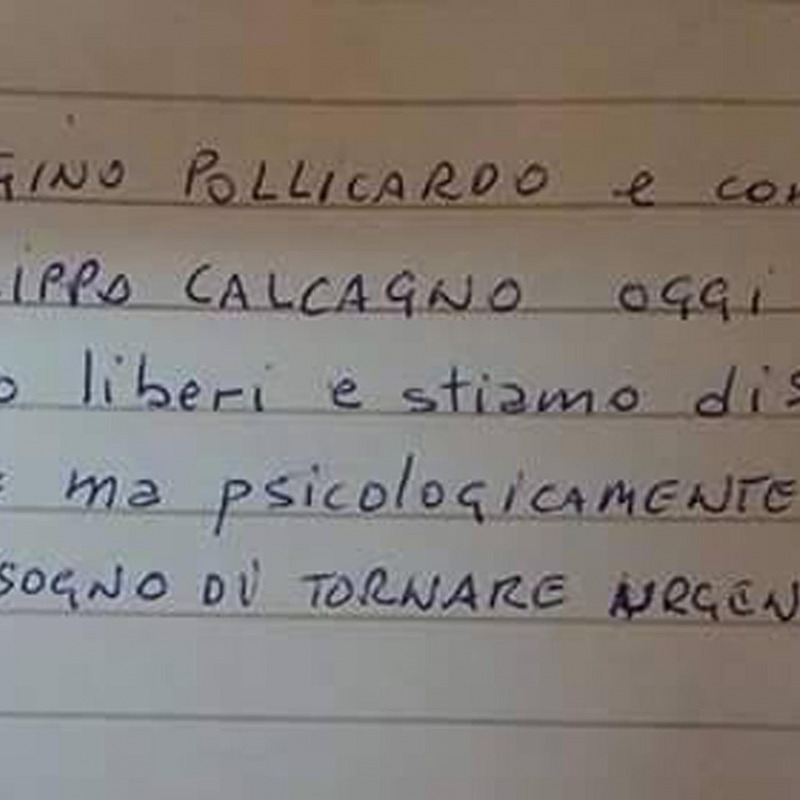 GINO POLLICARDO e con
LIPPO CALCAGNO OGGI
o liberi e stiamo dis
E ma psicologiCAMENTE
SOGNO DI TORNARE URGEN